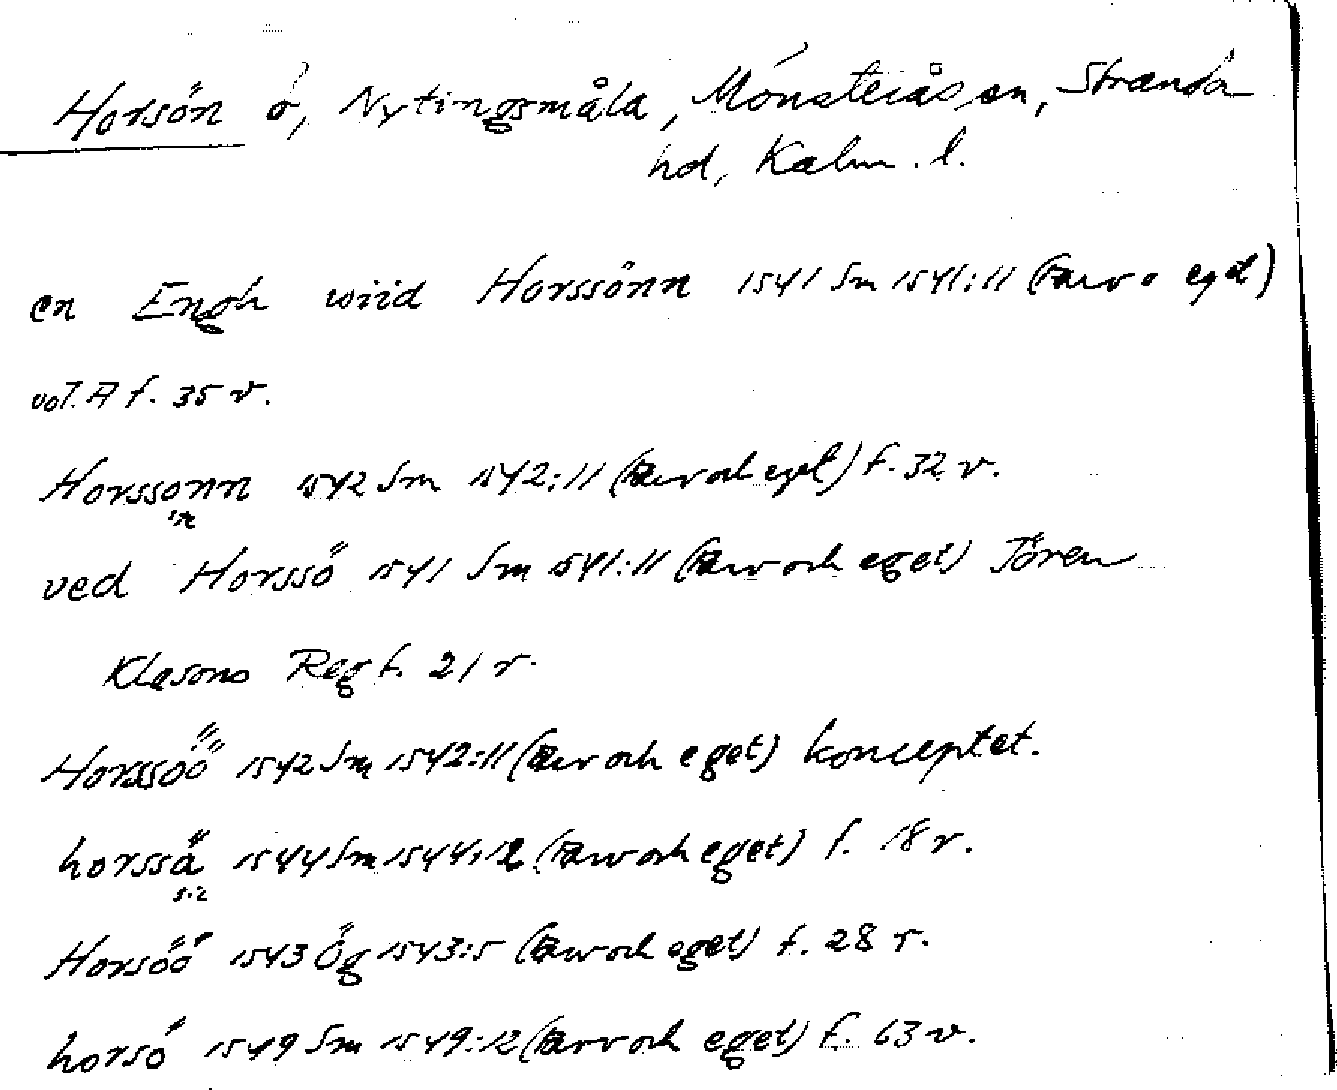 Horsön ö, Nytingsmåla, Mönsterås sn, Stranda
hd, Kalm. l.
en Engh wiid Horssönn 1541 Sm 1541:11 (Arv o eget)
vol. A f. 35 v.
Horssonn 1542 Sm 1542:11 (Arv och eget) f. 32 v.
sic
ved Horssö 1541 Sm 1541:11 (Arv och eget) Jören
Klasons Reg f. 21 r.
Horssöö 1542 Sm 1542:11 (Arv och eget) konceptet.
horssä 1544 Sm 1544:12 (Arv och eget) f. 18 r.
sic
Horsöö 1543 Ög 1543:5 (Arv och eget) f. 28 r.
horsö 1549 Sm 1549:12 (Arv och eget) f. 63 v.